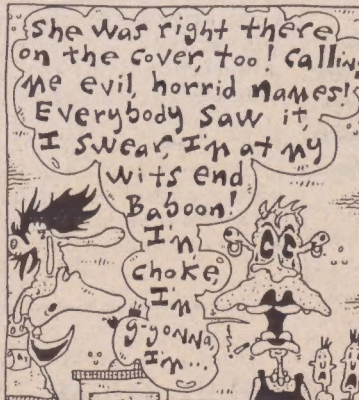 She was right there
on the cover, too! Calling
me evil, horrid names!!
Everybody saw it,
I swear, I'm at my
wits end
Baboon!
I'm,
choke,
I'm
g-gonna
I'm...